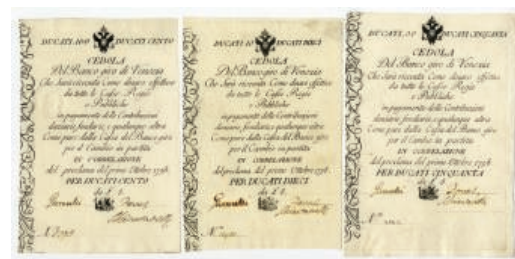 DUCATI 100 DUCATI CENTO
CEDOLA
Del Banco giro di Venezia
Che Sarà ricevuta Come denaro effettivo
da tutte le Casse Regie
e Pubbliche
in pagamento delle Contribuzioni
denaro, fondiarie, e qualunque altra
Come pure dalla Cassa del Banco giro
per il Cambio in partita
IN CORRELAZIONE
del proclama del primo Ottobre 1798
PER DUCATI CENTO
N.
DUCATI 10 DUCATI DIECI
CEDOLA
Del Banco giro di Venezia
Che Sarà ricevuta Come denaro effettivo
da tutte le Casse Regie
e Pubbliche
in pagamento delle Contribuzioni
fondiarie, e qualunque altra
Come pure dalla Cassa del Banco giro
per il Cambio in partita
IN CORRELAZIONE
del proclama del primo Ottobre 1798
PER DUCATI DIECI
N.
DUCATI 50 DUCATI CINQUANTA
CEDOLA
Del Banco giro di Venezia
Che Sarà ricevuta Come denaro effettivo
da tutte le Casse Regie
e Pubbliche
in pagamento delle Contribuzioni
fondiarie, e qualunque altra
Come pure dalla Cassa del Banco giro
per il Cambio in partita
IN CORRELAZIONE
del proclama del primo Ottobre 1798
PER DUCATI CINQUANTA
N.